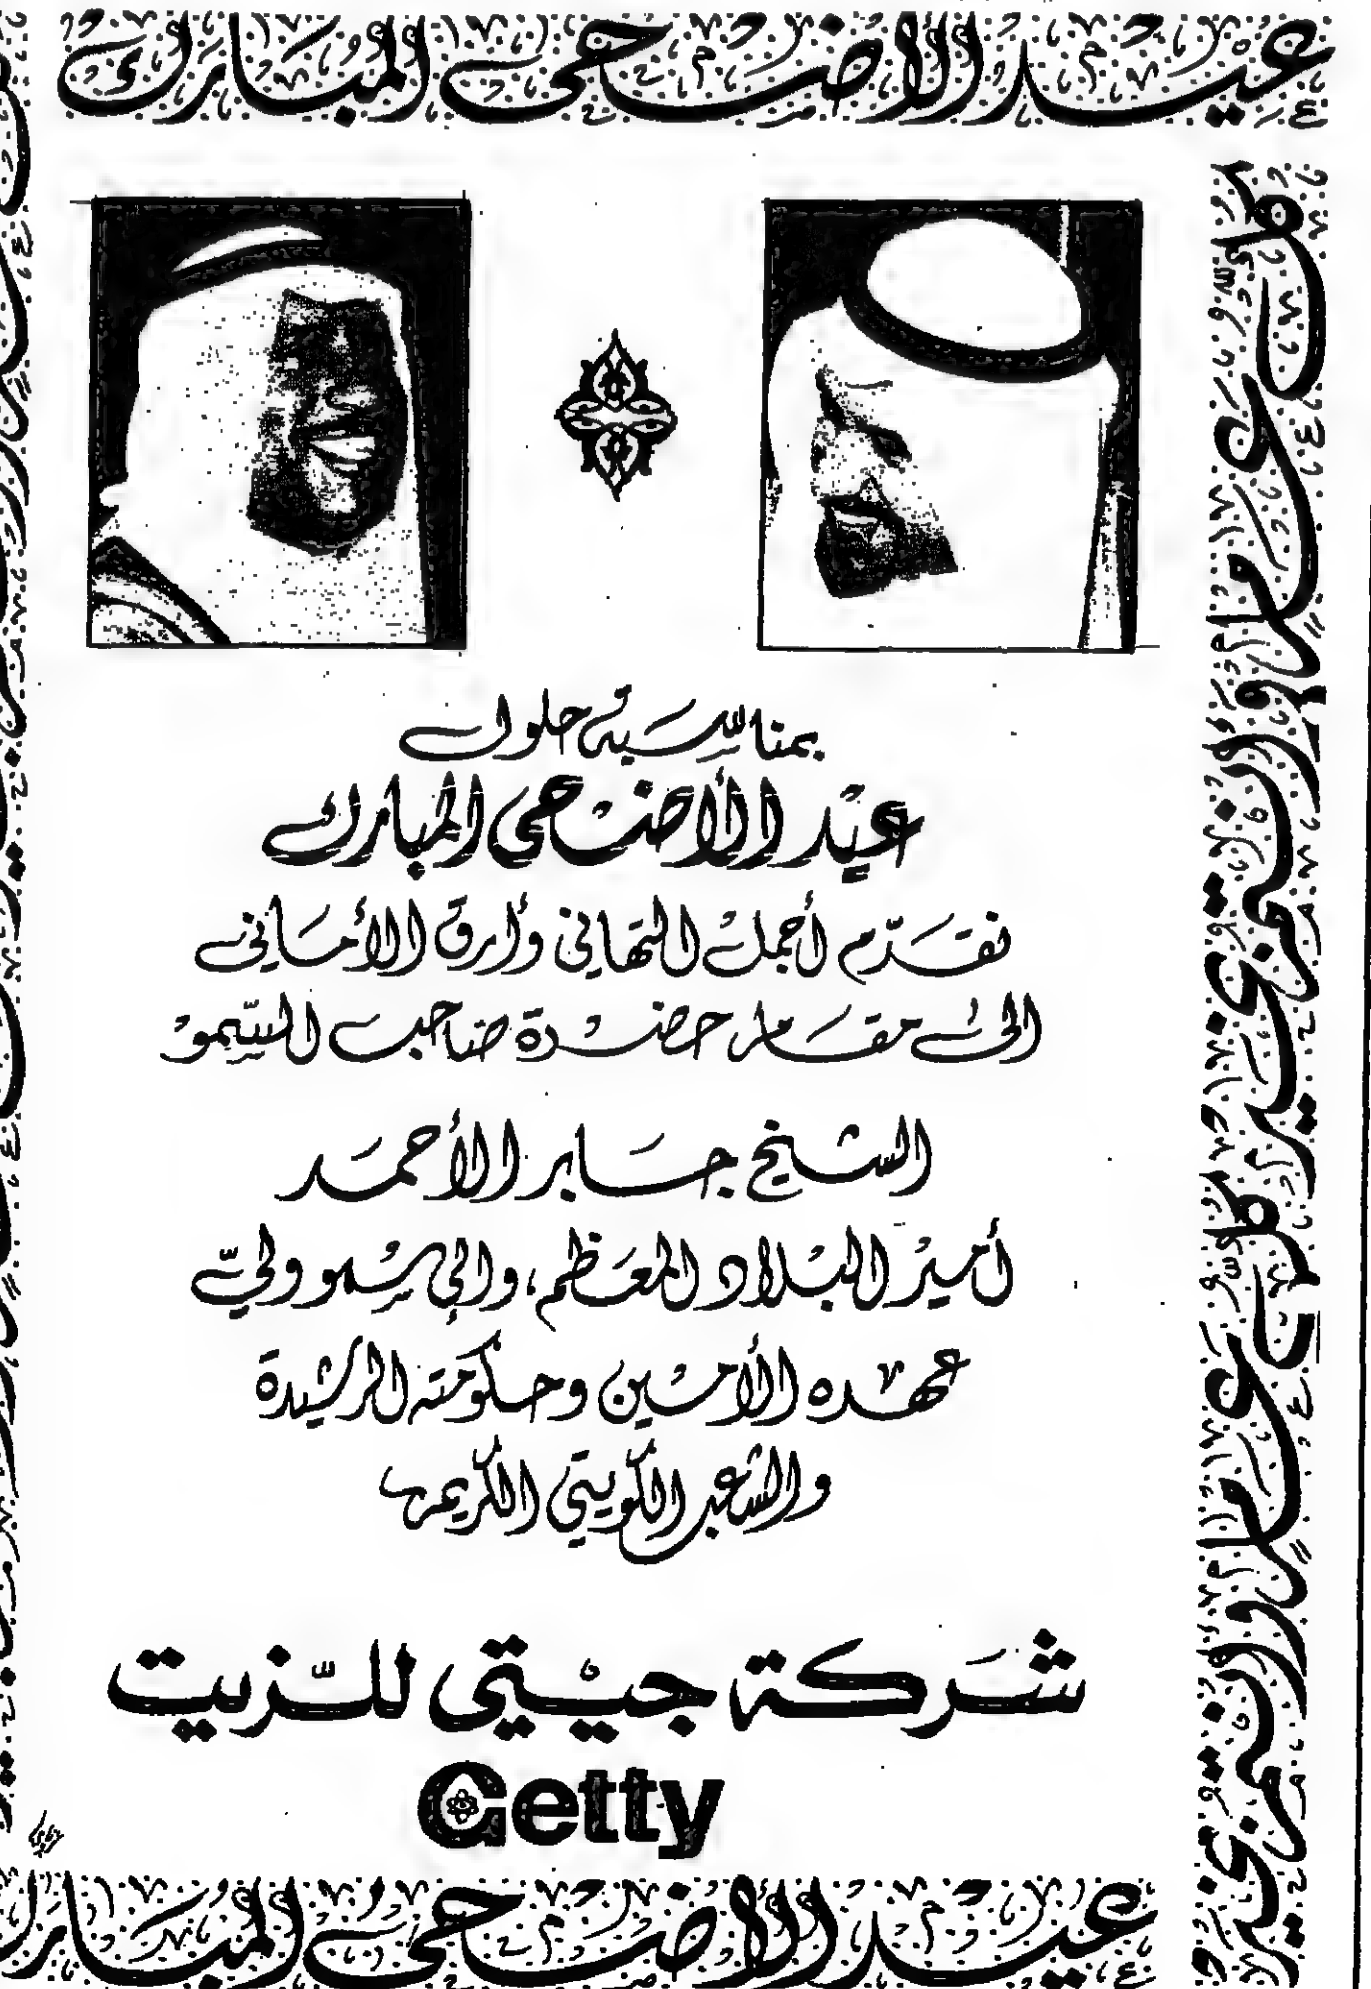 عيد الأضحى المبارك
كل عام وأنتم بخير كل عام وأنتم بخير
بمناسبة حلول
عيد الأضحى المبارك
نقدّم أجمل التهاني وأرق الأماني
الى مقام حضرة صاحب السّمو
الشيخ جابر الأحمد
أمير البلاد المعظم، والى سمو وليّ
عهده الأمين وحكومته الرشيدة
والشعب الكويتي الكريم
شركة جيتي للزيت
Getty
عيد الأضحى المبارك